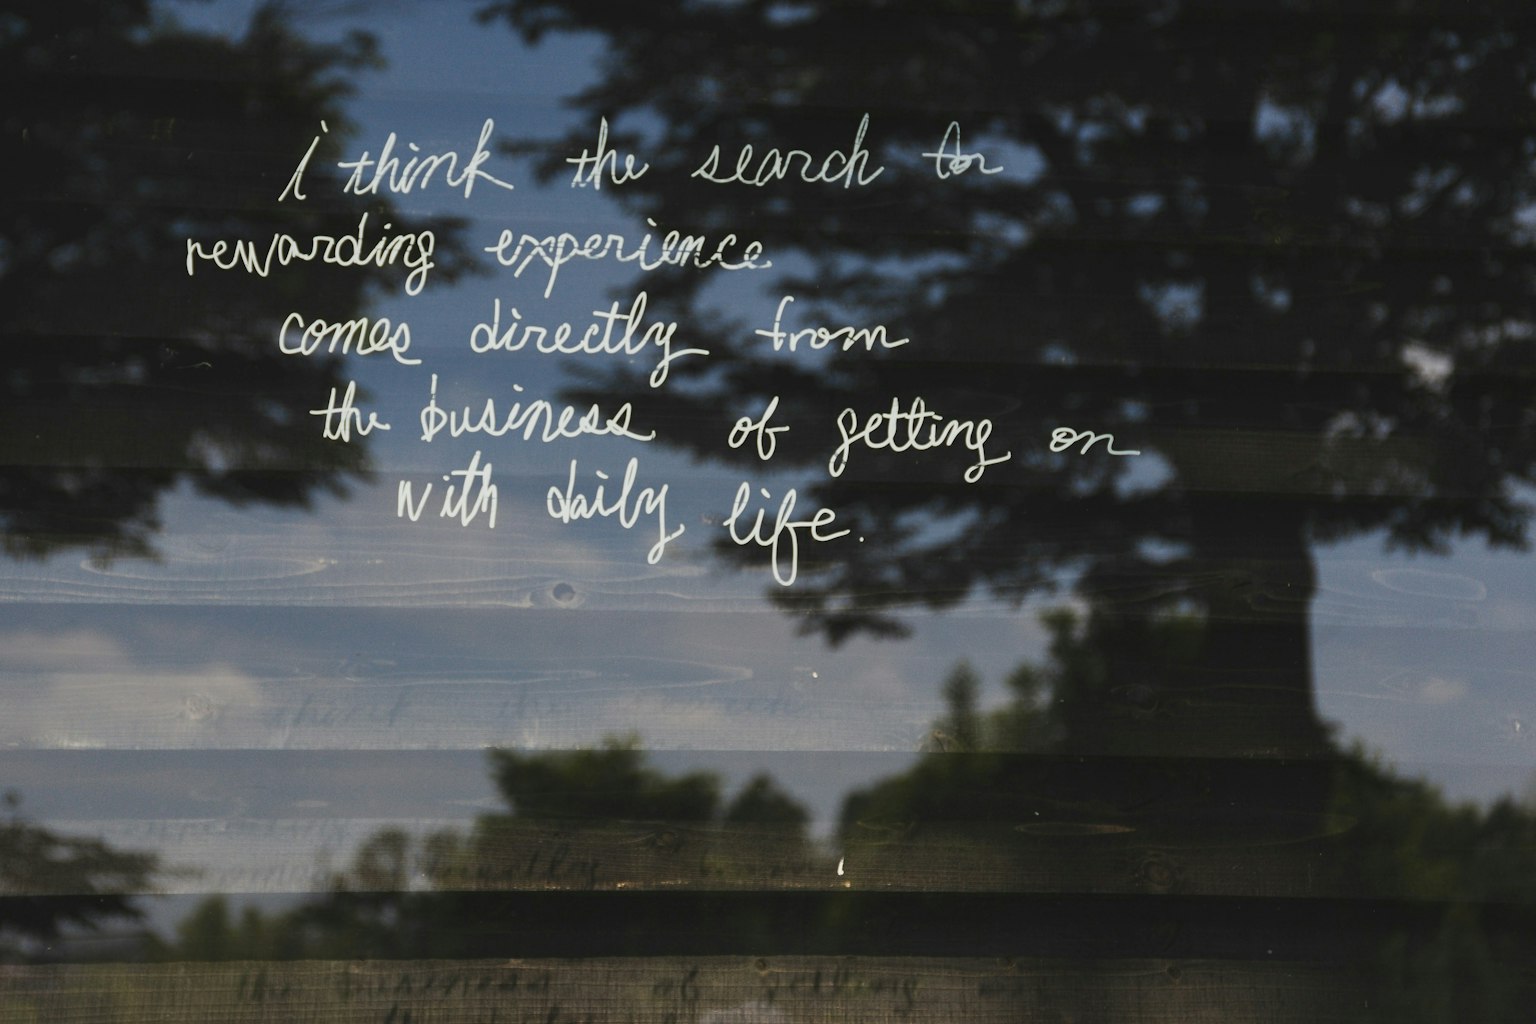 i think the search for
rewarding experience
comes directly from
the business of getting on
with daily life.